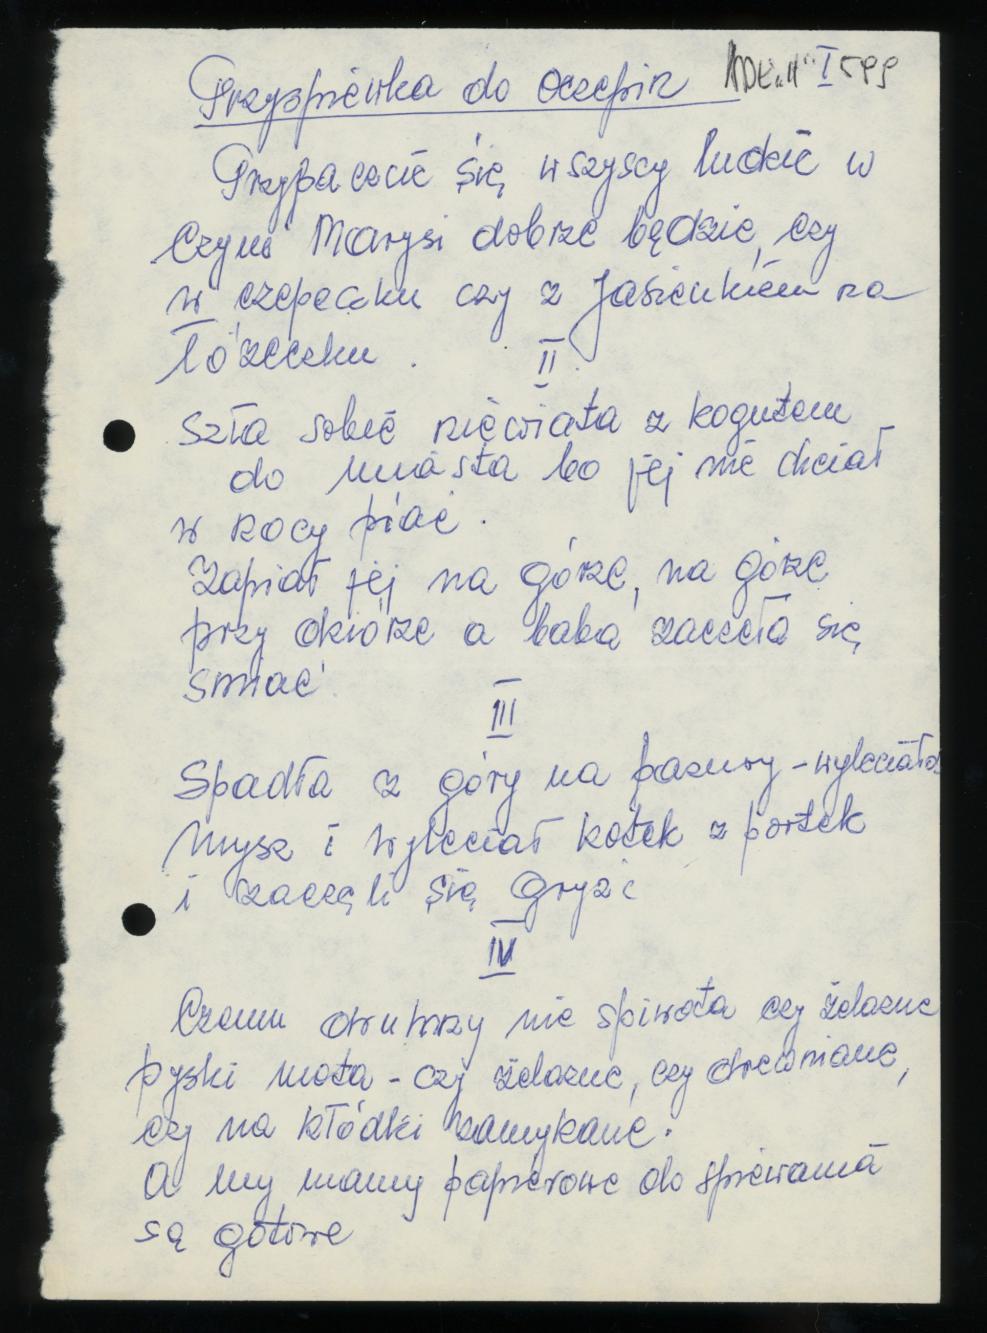 Przyśpiewka do Oczepin I 599
Przypaczcie się wszyscy ludzie w
czym Marysi dobrze będzie, czy
w czepeczku czy z Jasieńkiem na
łóżeczku.
II
Szła sobie niewiasta z kogutem
do miasta bo jej nie chciał
w nocy piać.
Zapiał jej na górze, na górze
przy okiórze a baba zaceła się
śmiać
III
Spadła z góry na pazury - wyleciała
Mysz i wyleciał kotek z portek
i zaczęli się gryźć
IV
Czemu nie śpiwota czy żelazne
pyski mota - czy żelazne, czy drewniane,
czy na kłódki zamykane.
A my mamy papierowe do śpiewania
są gotowe